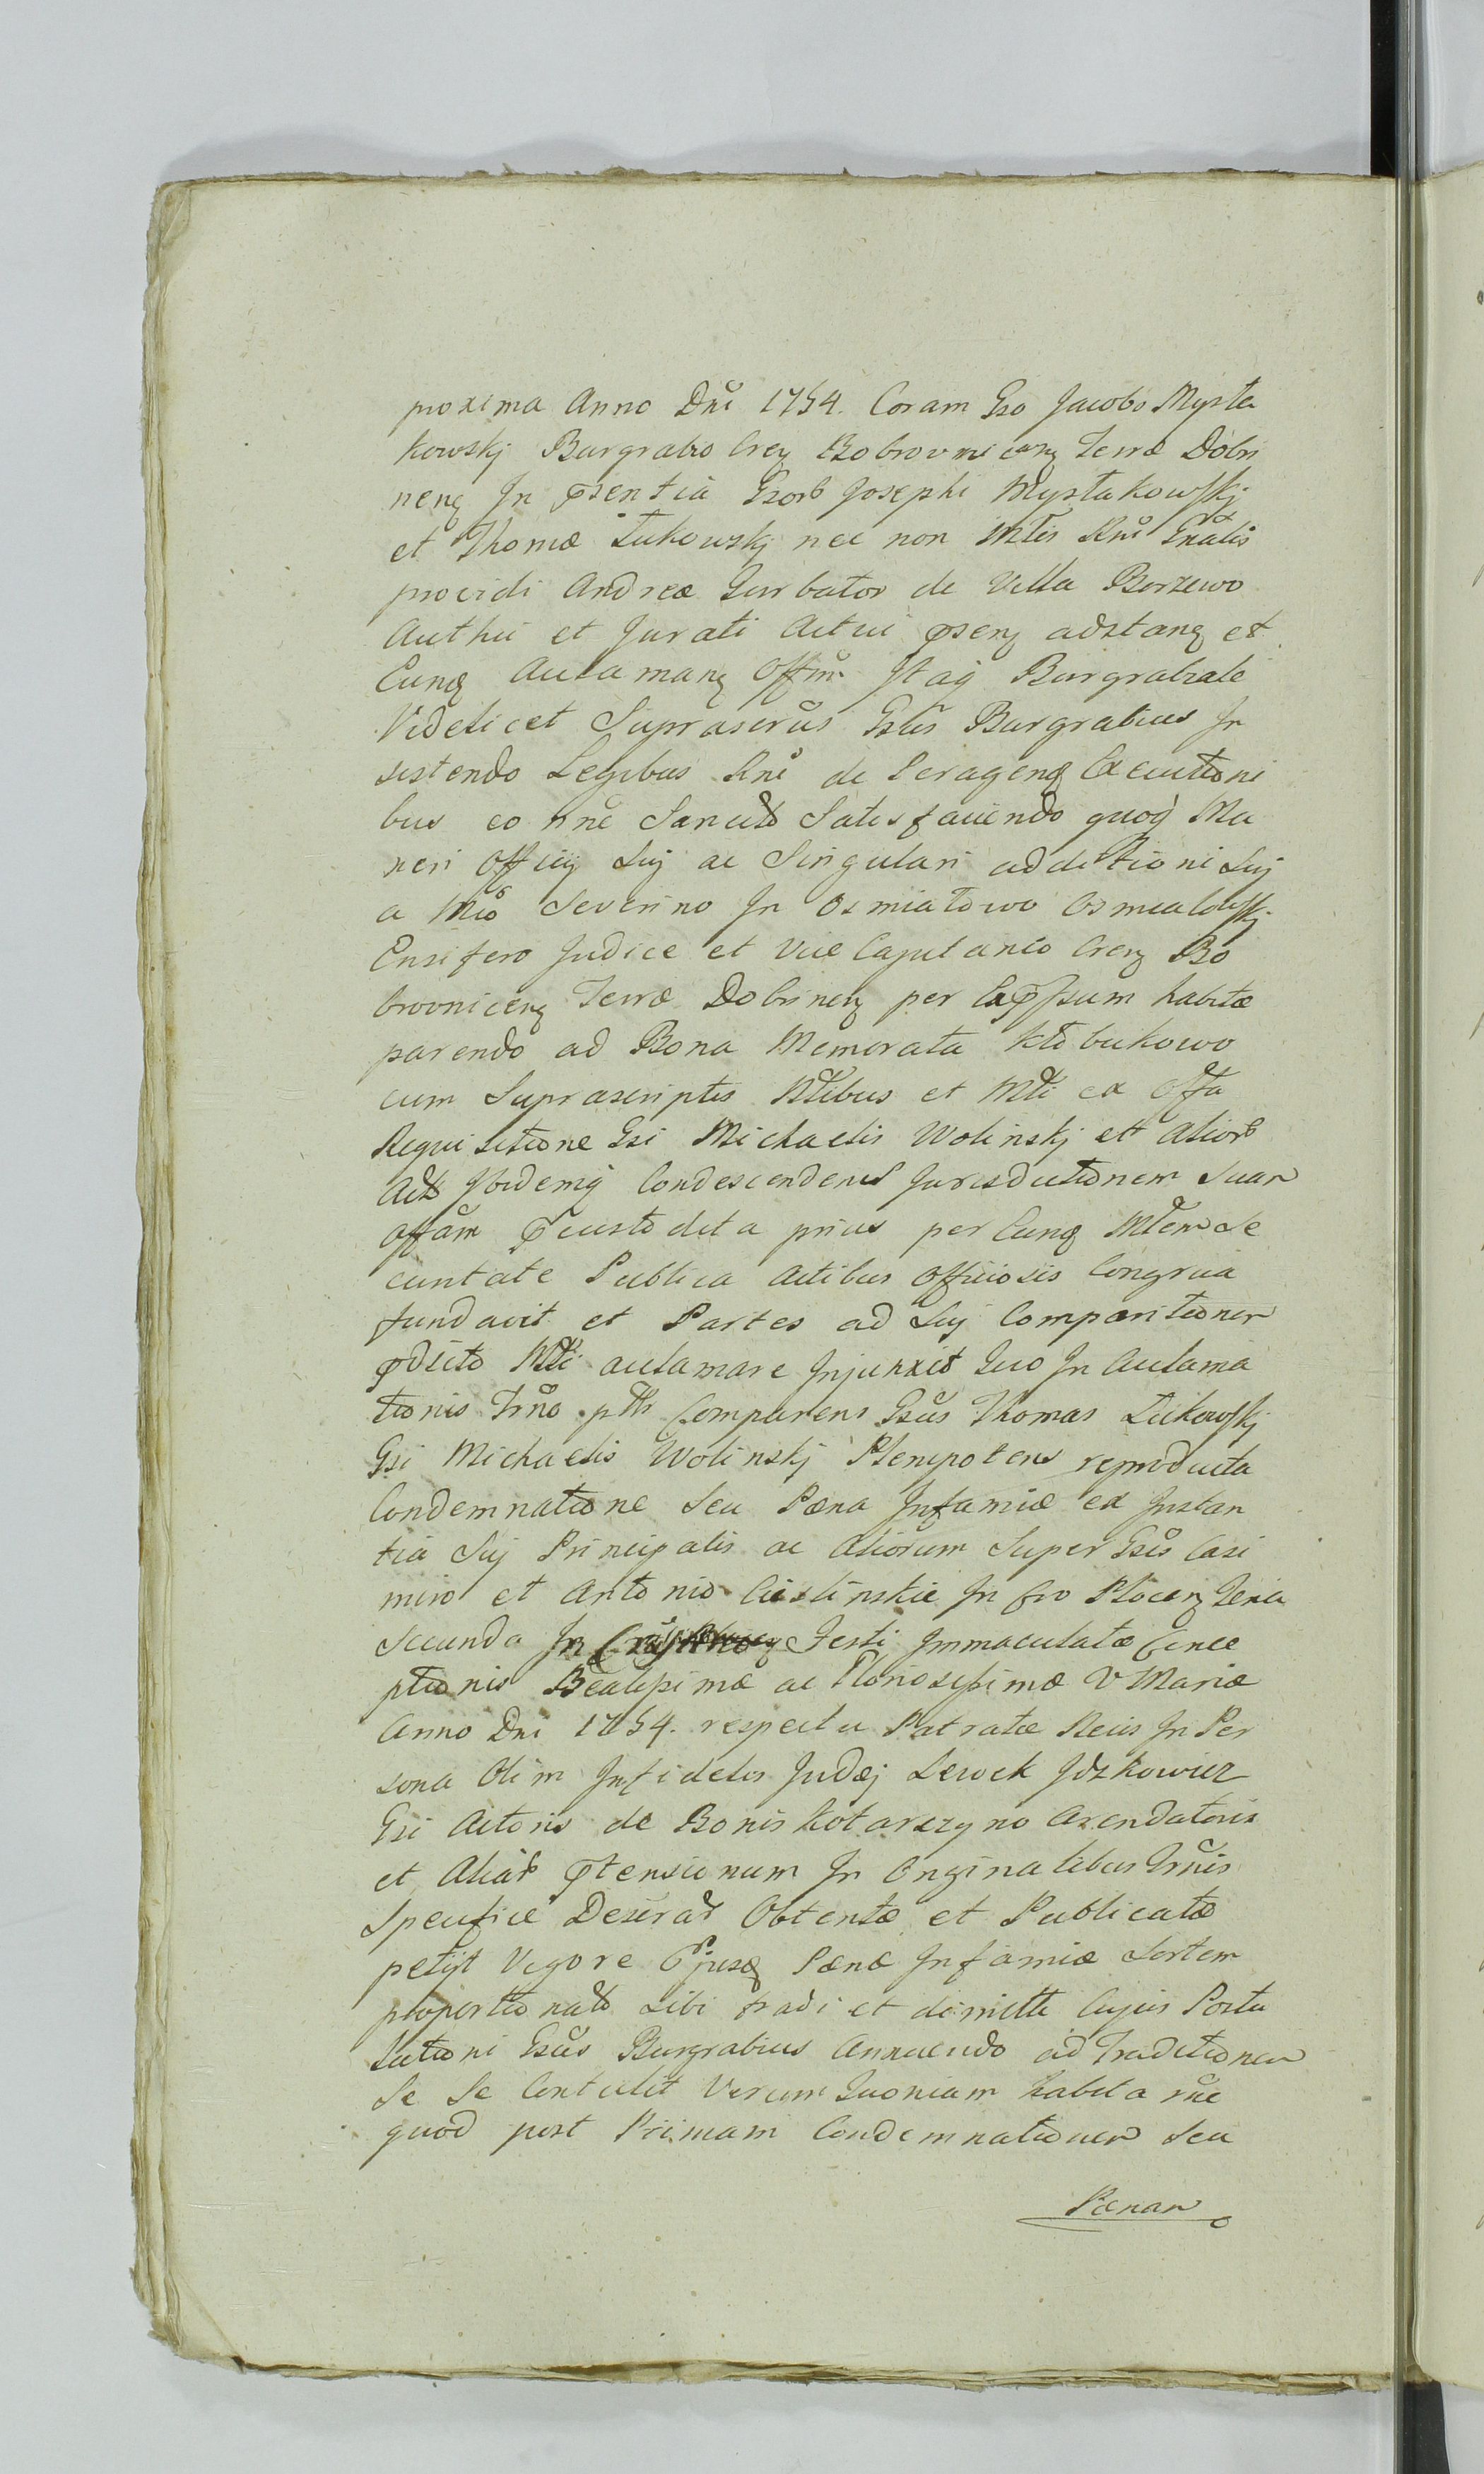 proxima Anno Dni 1754. Coram Gso Jacobo Mysta
kowskj Burgrabio Crej Bobrovnicenꝫ Terræ Dobri
nenꝫ In psentia Gsorb Josephi Mystakowskj
et Thomæ Łukowskj nec non Mtis Rni Gnalis
providi Andreæ Gurbator de Villa Borzewo
Authci et Jurati Actui psenꝫ adstanꝫ et
Eunꝫ Aclamanꝫ Offm Itaq Burgrabiale
Videlicet Suprascrus Gsus Burgrabius In
sistendo Legibus Rni de Peragenꝫ Executioni
bus eo nne Sancito Satisfaciendo quoq Mu
neri Officij Suj ac Singulari additioni Suj
a Mco Severino In Osmiałowo Osmialowskj
Ensifero Judice et Vice Capitaneo Crenꝫ Bo
brovnicenꝫ Terræ Dobrinenꝫ per Expssum habitæ
parendo ad Bona Memorata Kłobukowo
cum Suprascriptis Nlibus et Mtli ex Offa
Requisitione Gsi Michaelis Wolinskj et Aliorb
Acto Ibidemq Condescendens Jurisdictionem Suam
Offam pcustodita prius per Eunꝫ Mtlem Se
curitate Publica Actibus Officiosis Congrua
fundavit et Partes ad Suj Comparitionem
pdicto Mtli aclamare Injunxit Quo In Aclama
tionis Trno pttr Comparens Gsus Thomas Łukowskj
Gsi Michaelis Wolinskj Plenipotens reproducta
Condemnatione Seu Pæna Infamiæ ex Instan
tia Suj Principalis ac Aliorum Super Gsis Casi
miro et Antonio Cieslinskie In Cro Plocenꝫ Feria
Secunda Festi Immaculatæ Conce
ptionis Beatissimæ ac Gloriosissimæ V Mariæ
Anno Dni 1754. respectu Patratæ Necis In Per
sona Olim Infidelis Judæj Lewek Jdzkowicz
Gsi Actoris de Bonis Kotarczyno Arendatoris
et Aliarb ptensionum In Originalibus Trnis
Specifice Descrar Obtentæ et Publicatæ
petijt Vigore Ejusꝫ Pænæ Infamiæ Sortem
proportionato Sibi tradi et dimitti Cujus Postu
lationi Gsus Burgrabius Annuendo ad Traditionem
Se Se Contulit Verum Quoniam habita rne
quod post Primam Condemnationem Seu
Pænam